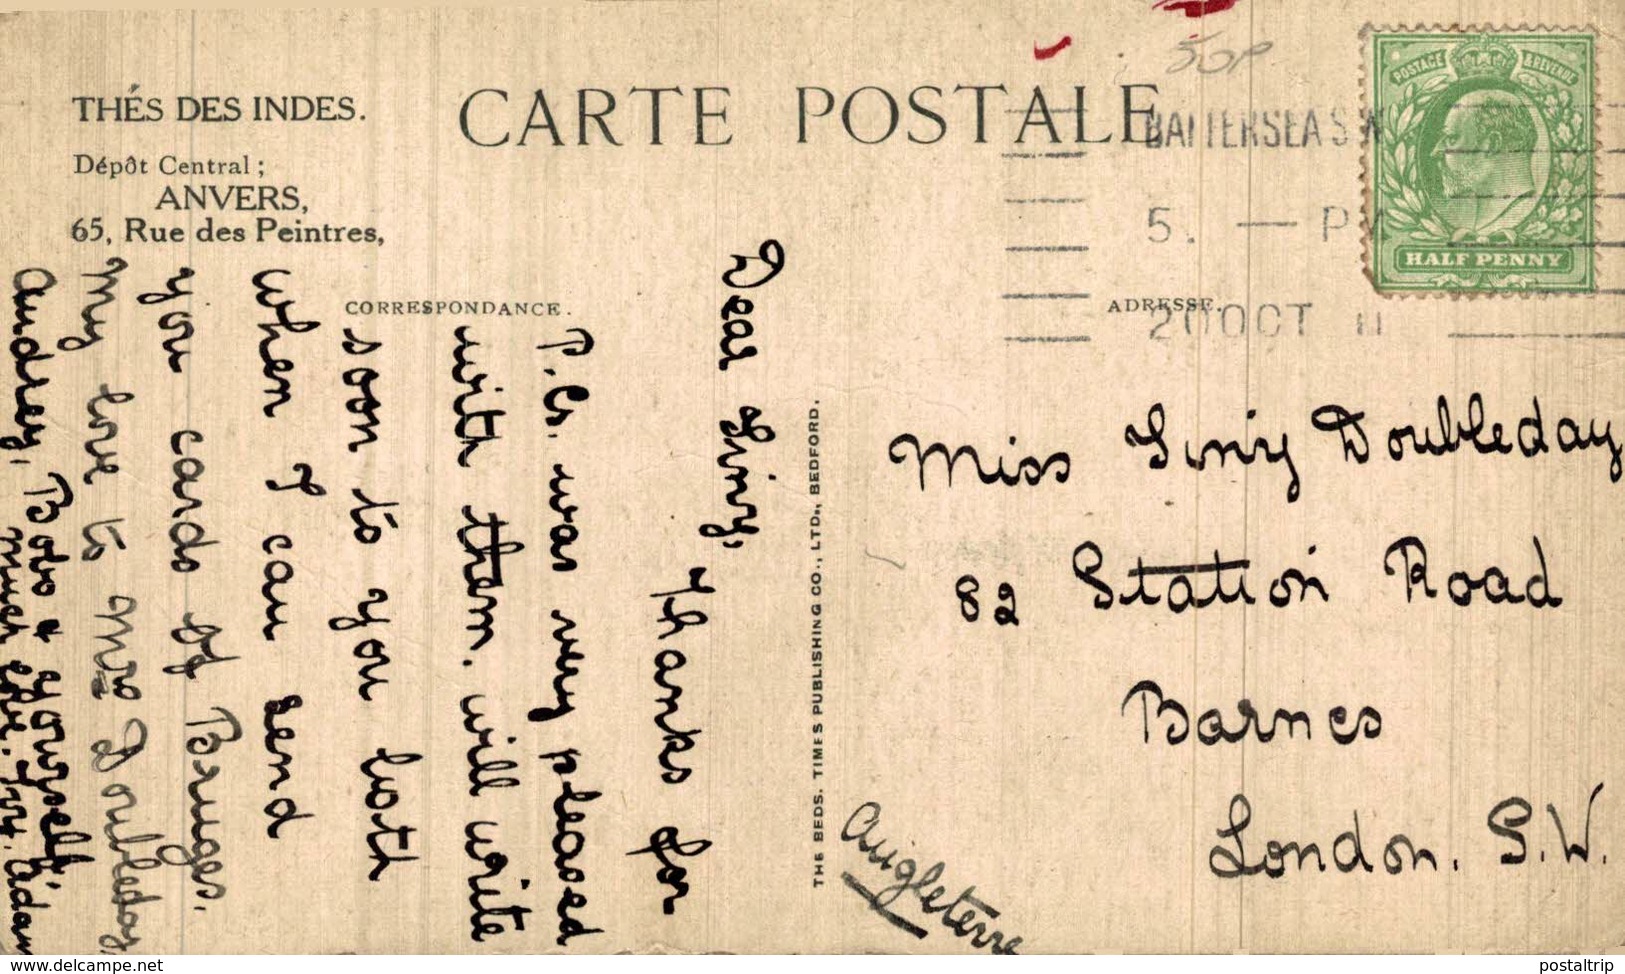 THÉS DES INDES.
Dépôt Central;
ANVERS,
65, Rue des Peintres,
CARTE POSTALE
50P
BATTERSEA S.W
5. — PM
20 OCT 11
POSTAGE & REVENUE
HALF PENNY
CORRESPONDANCE.
ADRESSE.
Dear Siny,
Thanks for
P.Cs. was very pleased
with them. will write
soon to you both
when I can send
you cards of Bruges.
My love to Mrs Doubleday
Audrey, Bobo & yourself,
much love. Ivy. Adam
THE BEDS. TIMES PUBLISHING CO., LTD., BEDFORD.
Miss Siny Doubleday
82 Station Road
Barnes
London. S.W.
Angleterre
delcampe.net
postaltrip